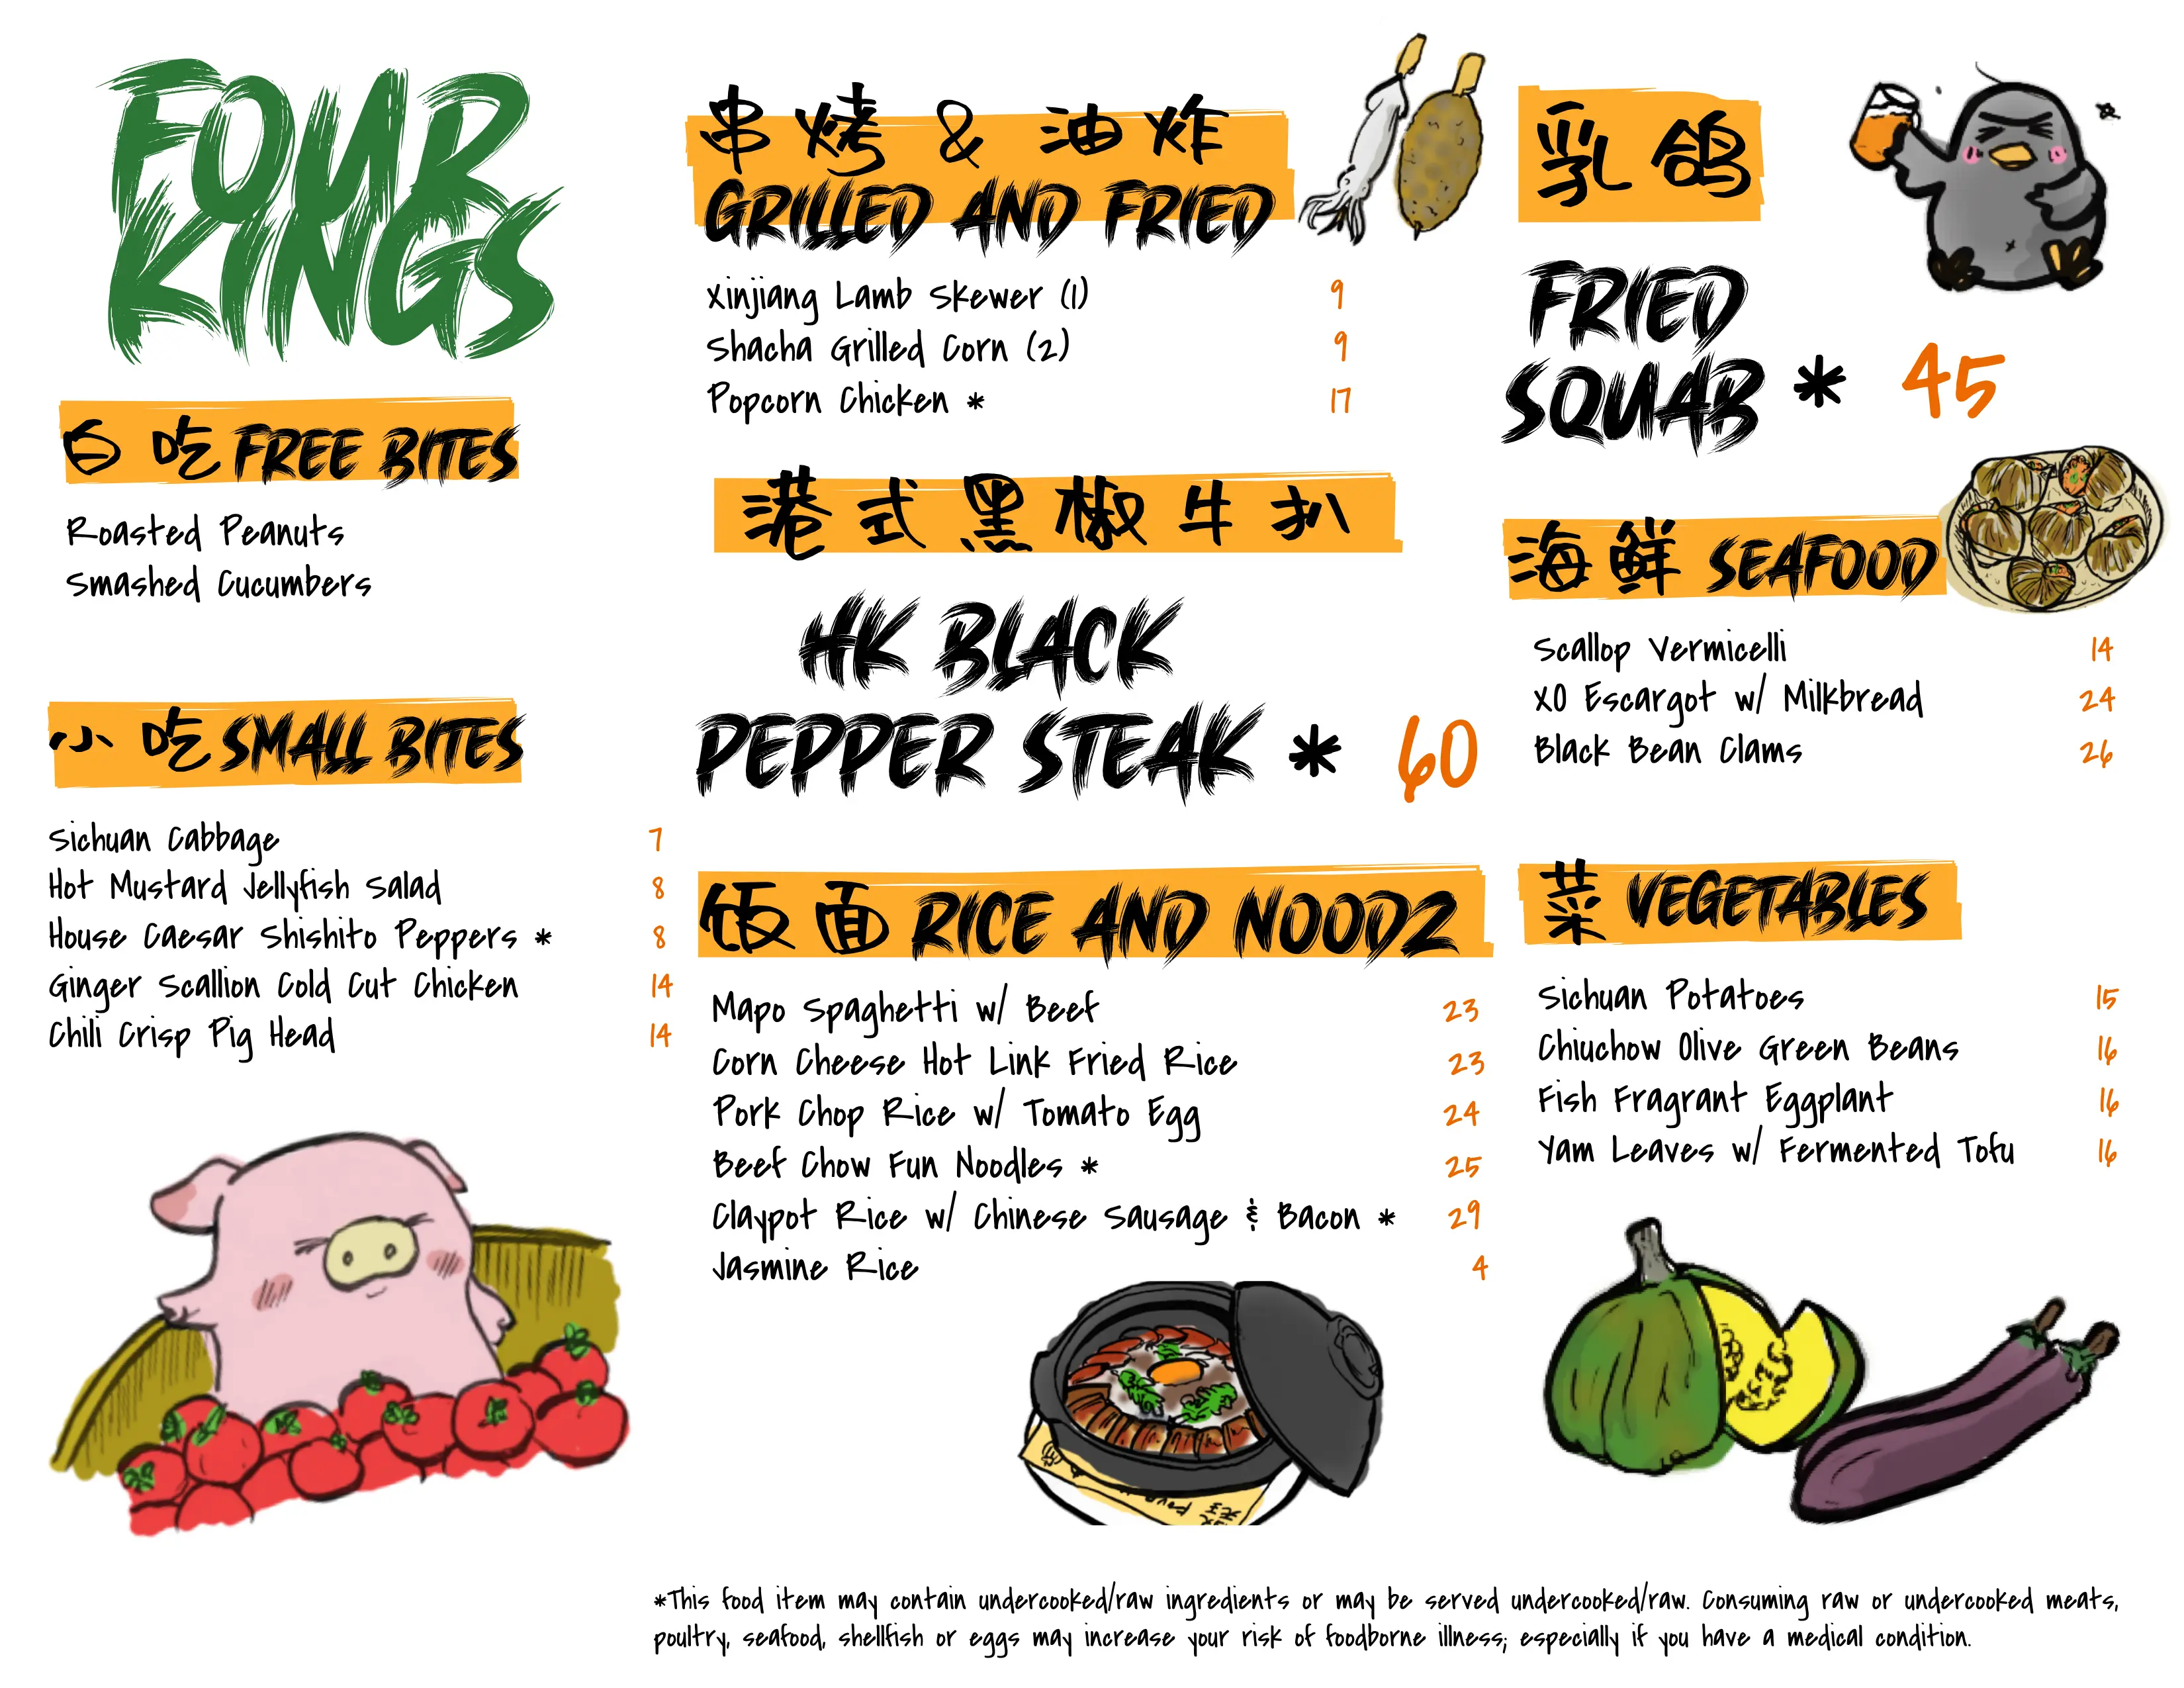 FOUR
KINGS
白吃 FREE BITES
Roasted Peanuts
Smashed Cucumbers
小吃 SMALL BITES
Sichuan Cabbage 7
Hot Mustard Jellyfish Salad 8
House Caesar Shishito Peppers * 8
Ginger Scallion Cold Cut Chicken 14
Chili Crisp Pig Head 14
串烤 & 油炸
GRILLED AND FRIED
Xinjiang Lamb Skewer (1) 9
Shacha Grilled Corn (2) 9
Popcorn Chicken * 17
港式黑椒牛扒
HK BLACK
PEPPER STEAK * 60
饭面 RICE AND NOODZ
Mapo Spaghetti w/ Beef 23
Corn Cheese Hot Link Fried Rice 23
Pork Chop Rice w/ Tomato Egg 24
Beef Chow Fun Noodles * 25
Claypot Rice w/ Chinese Sausage & Bacon * 29
Jasmine Rice 4
乳鸽
FRIED
SQUAB * 45
海鲜 SEAFOOD
Scallop Vermicelli 14
XO Escargot w/ Milkbread 24
Black Bean Clams 26
菜 VEGETABLES
Sichuan Potatoes 15
Chiuchow Olive Green Beans 16
Fish Fragrant Eggplant 16
Yam Leaves w/ Fermented Tofu 16
*This food item may contain undercooked/raw ingredients or may be served undercooked/raw. Consuming raw or undercooked meats,
poultry, seafood, shellfish or eggs may increase your risk of foodborne illness; especially if you have a medical condition.